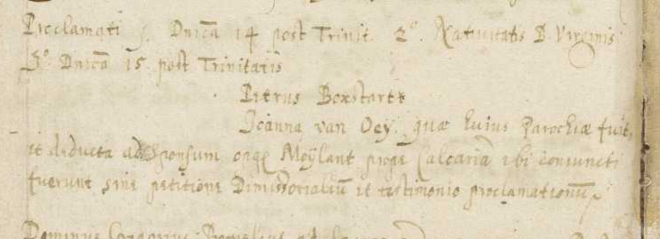 Proclamati 1. Dnicâ 14 post Trinit. 2°. Nativitatis B. Virginis
3° Dnicâ 15 post Trinitatis
Petrus Boxstart
Joanna van Oey quæ huius Parochiæ fuit,
et deducta ad sponsum Moÿlant prope Calcaria ibi coniuncti
fuerunt sine petitione Dimissorialium et testimonio proclamationum
Dominus